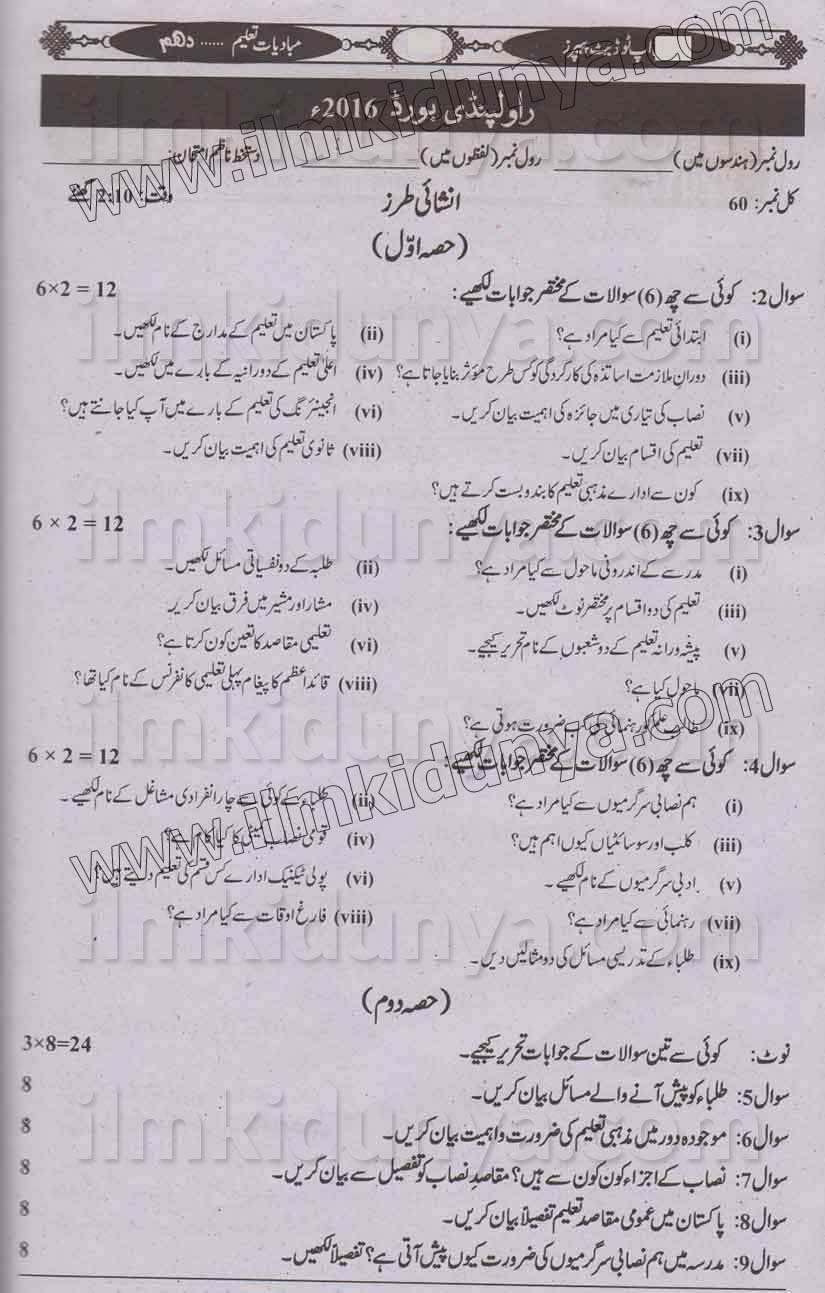 اپ ٹو ڈیٹ پیپرز
مبادیات تعلیم ...... دہم
راولپنڈی بورڈ 2016ء
رول نمبر (ہندسوں میں) ________ رول نمبر (لفظوں میں) ________ دستخط ناظم امتحان: ________
کل نمبر: 60 انشائی طرز وقت: 2:10 گھنٹے
(حصہ اوّل)
سوال 2: کوئی سے چھ (6) سوالات کے مختصر جوابات لکھیے: 6×2 = 12
(i) ابتدائی تعلیم سے کیا مراد ہے؟ (ii) پاکستان میں تعلیم کے مدارج کے نام لکھیں۔
(iii) دوران ملازمت اساتذہ کی کارکردگی کو کس طرح مؤثر بنایا جاتا ہے؟ (iv) اعلیٰ تعلیم کے دورانیہ کے بارے میں لکھیں۔
(v) نصاب کی تیاری میں جائزہ کی اہمیت بیان کریں۔ (vi) انجینئرنگ کی تعلیم کے بارے میں آپ کیا جانتے ہیں؟
(vii) تعلیم کی اقسام بیان کریں۔ (viii) ثانوی تعلیم کی اہمیت بیان کریں۔
(ix) کون سے ادارے مذہبی تعلیم کا بندوبست کرتے ہیں؟
سوال 3: کوئی سے چھ (6) سوالات کے مختصر جوابات لکھیے: 6 × 2 = 12
(i) مدرسے کے اندرونی ماحول سے کیا مراد ہے؟ (ii) طلبہ کے دو نفسیاتی مسائل لکھیں۔
(iii) تعلیم کی دو اقسام پر مختصر نوٹ لکھیں۔ (iv) مشار اور مشیر میں فرق بیان کریں
(v) پیشہ ورانہ تعلیم کے دو شعبوں کے نام تحریر کیجیے۔ (vi) تعلیمی مقاصد کا تعین کون کرتا ہے؟
(vii) ماحول کیا ہے؟ (viii) قائداعظم کا پیغام پہلی تعلیمی کانفرنس کے نام کیا تھا؟
(ix) طالب علم کو رہنمائی کی کب ضرورت ہوتی ہے؟
سوال 4: کوئی سے چھ (6) سوالات کے مختصر جوابات لکھیے: 6 × 2 = 12
(i) ہم نصابی سرگرمیوں سے کیا مراد ہے؟ (ii) طلباء کے کوئی سے چار انفرادی مشاغل کے نام لکھیے۔
(iii) کلب اور سوسائٹیاں کیوں اہم ہیں؟ (iv) قومی نصاب کمیٹی کا کیا کام ہے؟
(v) ادبی سرگرمیوں کے نام لکھیے۔ (vi) پولی ٹیکنیک ادارے کس قسم کی تعلیم دیتے ہیں؟
(vii) رہنمائی سے کیا مراد ہے؟ (viii) فارغ اوقات سے کیا مراد ہے؟
(ix) طلباء کے تدریسی مسائل کی دو مثالیں دیں۔
(حصہ دوم)
نوٹ: کوئی سے تین سوالات کے جوابات تحریر کیجیے۔ 3×8=24
سوال 5: طلباء کو پیش آنے والے مسائل بیان کریں۔ 8
سوال 6: موجودہ دور میں مذہبی تعلیم کی ضرورت و اہمیت بیان کریں۔ 8
سوال 7: نصاب کے اجزاء کون کون سے ہیں؟ مقاصدِ نصاب کو تفصیل سے بیان کریں۔ 8
سوال 8: پاکستان میں عمومی مقاصد تعلیم تفصیلاً بیان کریں۔ 8
سوال 9: مدرسہ میں ہم نصابی سرگرمیوں کی ضرورت کیوں پیش آتی ہے؟ تفصیلاً لکھیں۔ 8
www.ilmkidunya.com
ilmkidunya.com
ilmkidunya.com
ilmkidunya.com
ilmkidunya.com
www.ilmkidunya.com
ilmkidunya.com
ilmkidunya.com